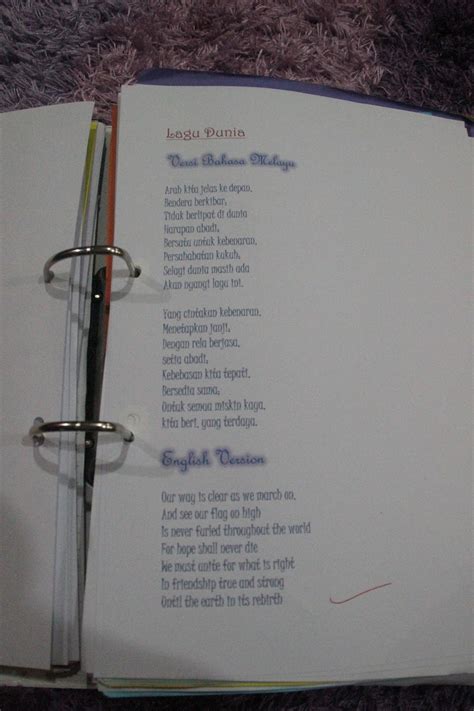 Lagu Dunia
Versi Bahasa Melayu
Arah kita jelas ke depan.
Bendera berkibar,
Tidak berlipat di dunia
Harapan abadi,
Bersatu untuk kebenaran,
Persahabatan kukuh,
Selagi dunia masih ada
Akan nyanyi lagu ini.
Yang cintakan kebenaran.
Menetapkan janji,
Dengan rela berjasa.
setia abadi,
Kebebasan kita tepati.
Bersedia sama,
Untuk semua miskin kaya.
kita beri. yang terdaya.
English Version
Our way is clear as we march on.
And see our flag on high
Is never furled throughout the world
For hope shall never die
We must unite for what is right
In friendship true and strong
Until the earth in its rebirth